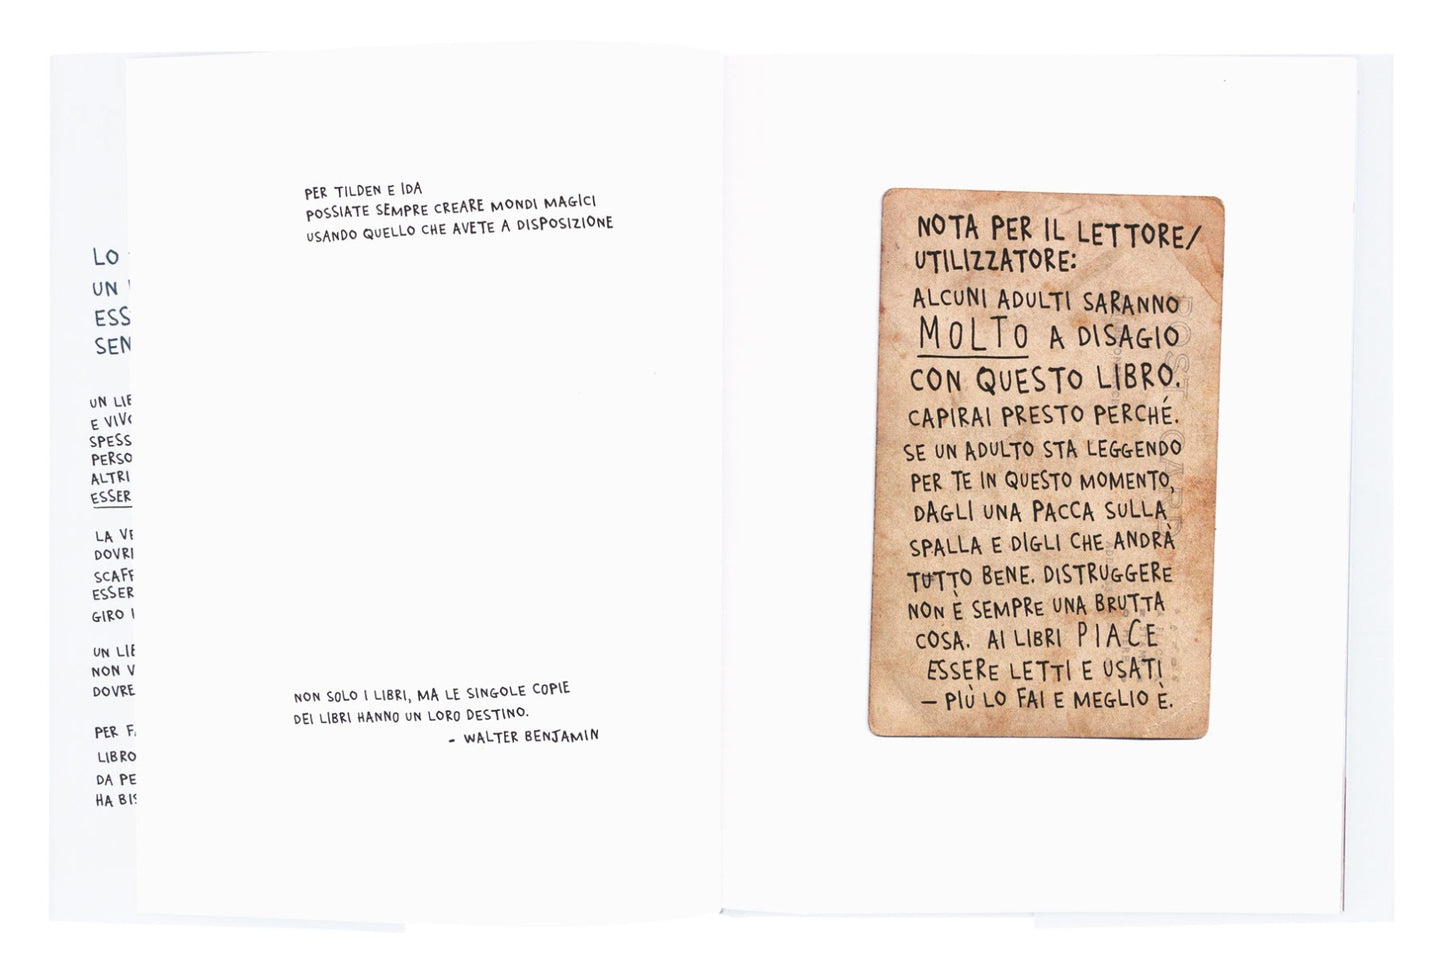 LO
UN
ESS
SEN
UN LIB
E VIVO
SPESS
PERSO
ALTRI
ESSER
LA VE
DOVRE
SCAFF
ESSER
GIRO
UN LIB
NON V
DOVRE
PER FA
LIBRO
DA PE
HA BIS
PER TILDEN E IDA
POSSIATE SEMPRE CREARE MONDI MAGICI
USANDO QUELLO CHE AVETE A DISPOSIZIONE
NON SOLO I LIBRI, MA LE SINGOLE COPIE
DEI LIBRI HANNO UN LORO DESTINO.
- WALTER BENJAMIN
NOTA PER IL LETTORE/
UTILIZZATORE:
ALCUNI ADULTI SARANNO
MOLTO A DISAGIO
CON QUESTO LIBRO.
CAPIRAI PRESTO PERCHÉ.
SE UN ADULTO STA LEGGENDO
PER TE IN QUESTO MOMENTO,
DAGLI UNA PACCA SULLA
SPALLA E DIGLI CHE ANDRÀ
TUTTO BENE. DISTRUGGERE
NON È SEMPRE UNA BRUTTA
COSA. AI LIBRI PIACE
ESSERE LETTI E USATI
– PIÙ LO FAI E MEGLIO È.
POST CARD